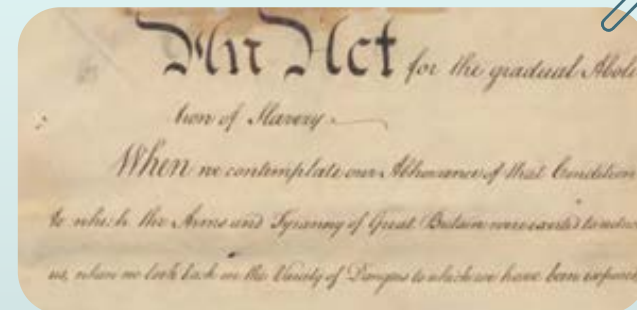 An Act for the gradual Aboli
tion of Slavery
When we contemplate our Abhorance of that Condition
to which the Arms and Tyranny of Great Britain were exerted to reduce
us, when we look back on the Variety of Dangers to which we have been exposed